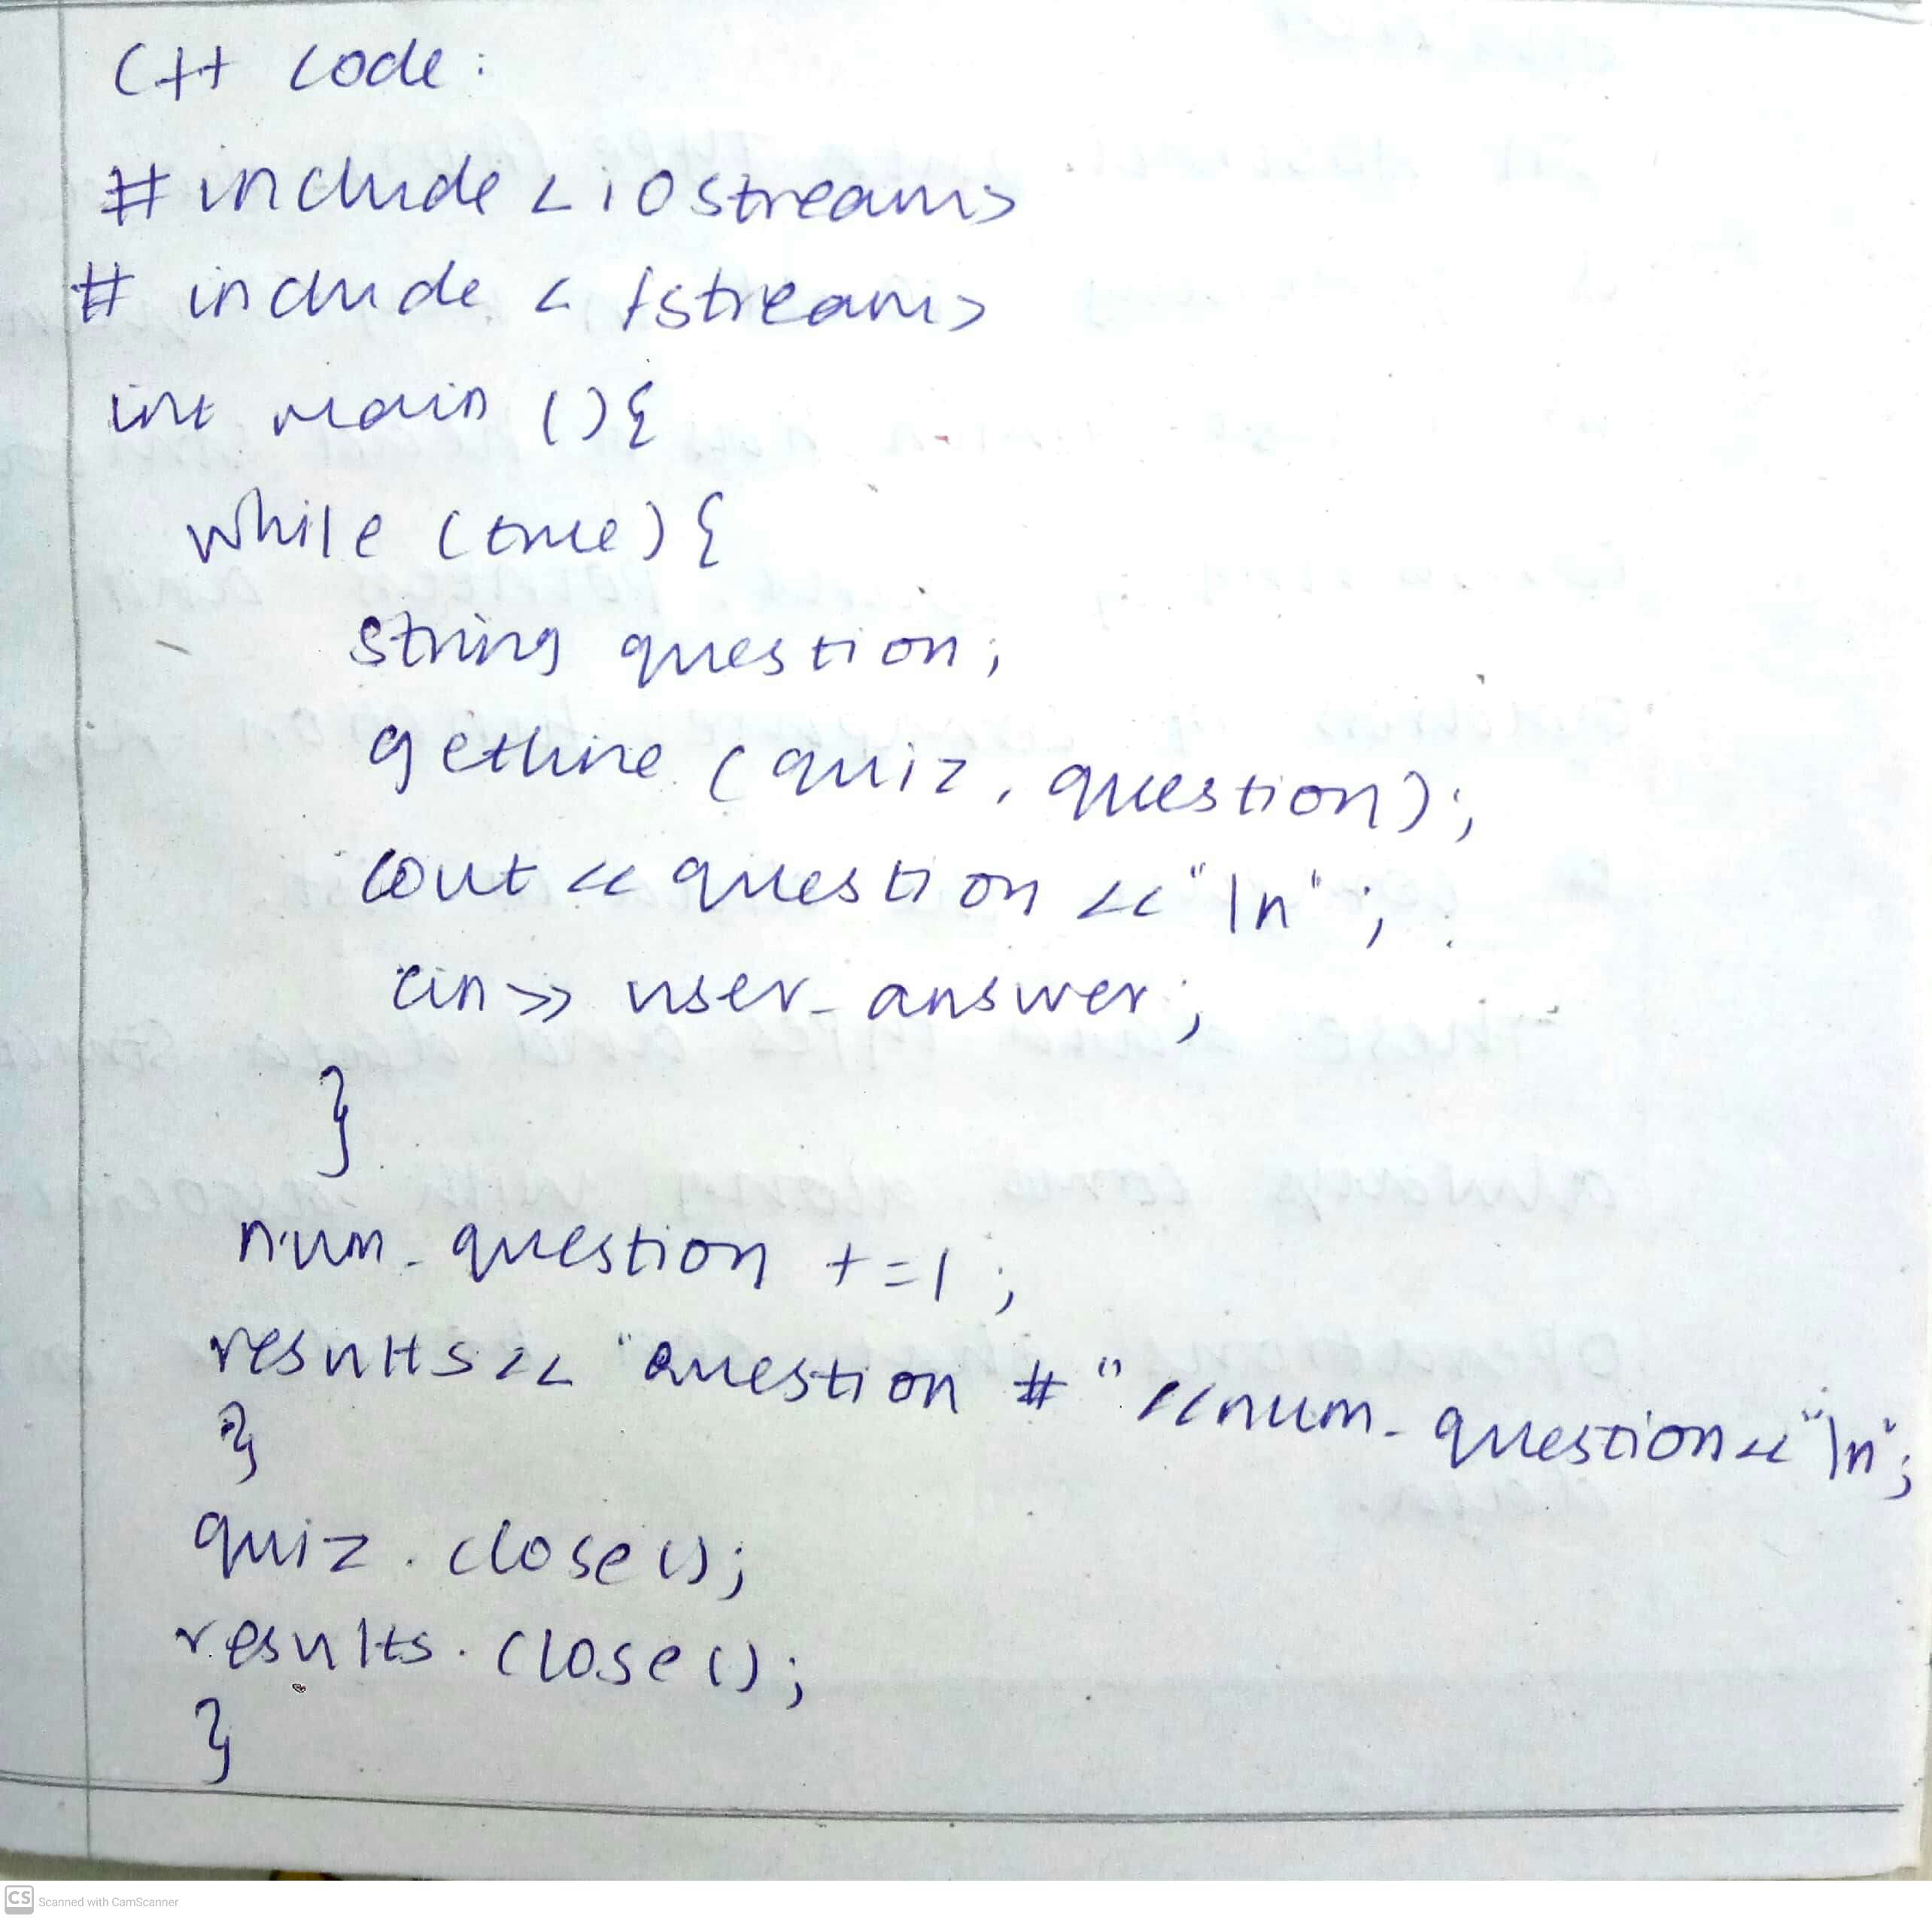 C++ code:
#include <iostream>
# include < fstream>
int main (){
while (true) {
string question;
getline (quiz, question);
cout << question << "\n";
cin >> user_answer;
}
num_question +=1;
results << "Question #" << num_question << "\n";
}
quiz.close();
results.close();
}
CS Scanned with CamScanner